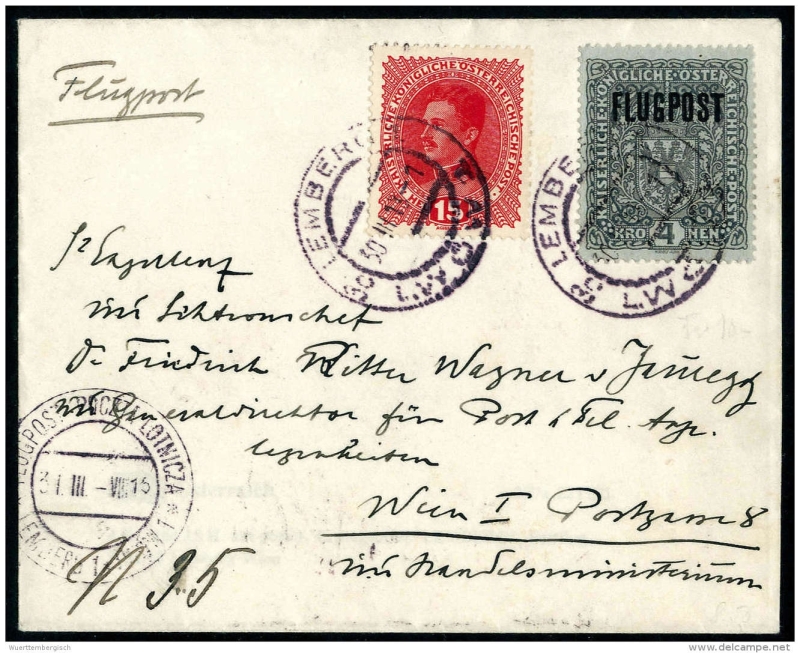 Flugpost
KAISERLICHE KÖNIGLICHE ÖSTERREICHISCHE POST
15
KAISERLICHE KÖNIGLICHE ÖSTERREICHISCHE POST
FLUGPOST
KRONEN
4
LEMBERG LWÓW
LEMBERG LWÓW
Sr Exzellenz
Sektionschef
Dr Friedrich Ritter Wagner v Jauregg
Generaldirektor für Post & Tel. Ange-
legenheiten
Wien I Postgasse 8
im Handelsministerium
FLUGPOST POCZTA LOTNICZA
31. III. - VIII 15
LEMBERG 1 LWÓW 1
N 35
Wuerttembergisch
delcampe.net